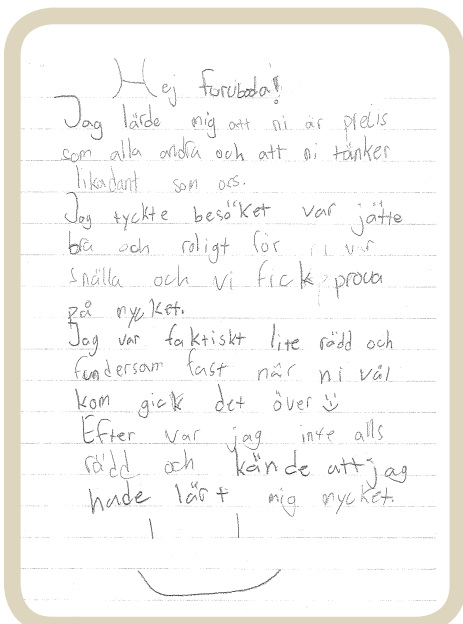 Hej Furuboda!
Jag lärde mig att ni är presis
som alla andra och att ni tänker
likadant som oss.
Jag tyckte besöket var jätte
bra och roligt för ni var
snälla och vi fick prova
på mycket.
Jag var faktiskt lite rädd och
fundersam fast när ni väl
kom gick det över
Efter var jag inte alls
rädd och kände att jag
hade lärt mig mycket.